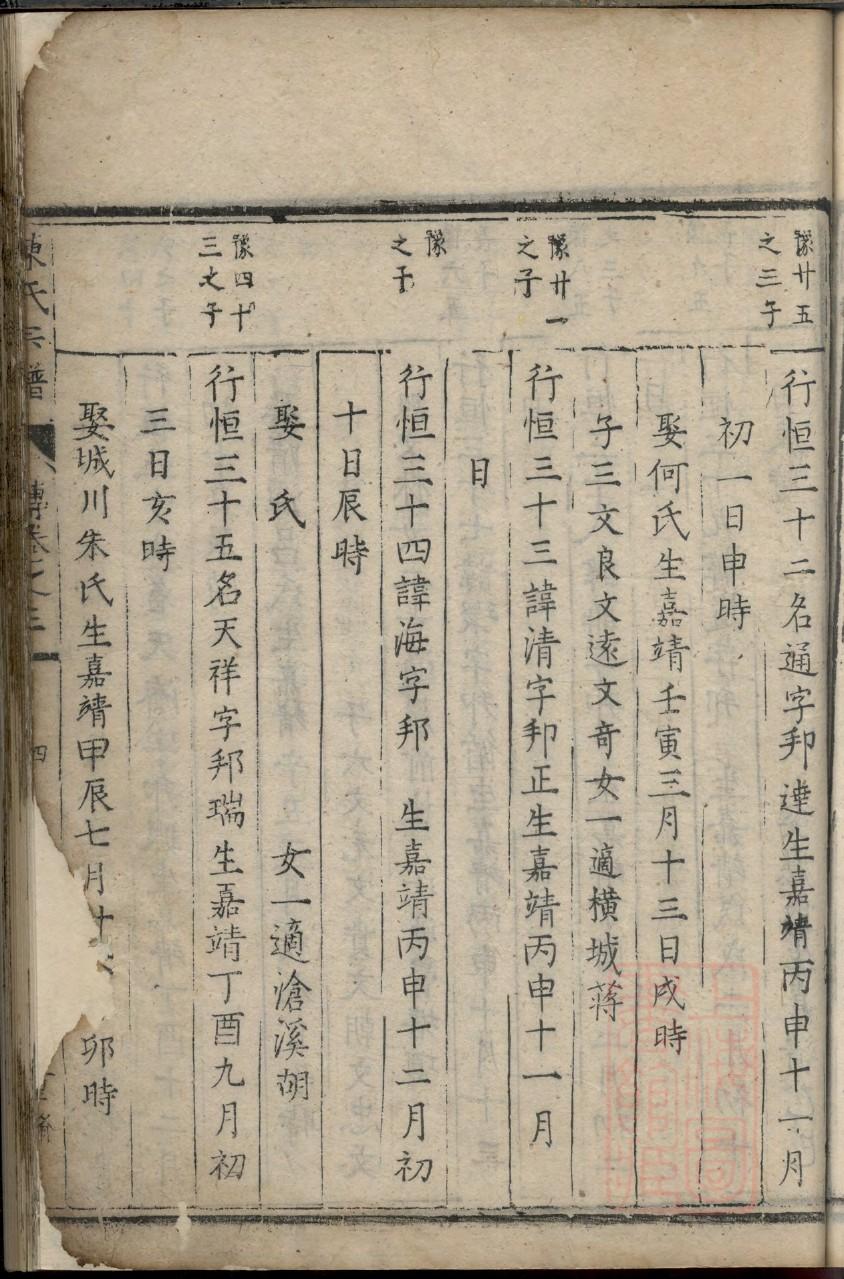 豫廿五
之三子
行恒三十二名通字邦達生嘉靖丙申十一月
初一日申時
娶何氏生嘉靖壬寅三月十三日戌時
子三文良文遠文奇女一適橫城蔣
豫廿一
之子
行恒三十三諱清字邦正生嘉靖丙申十一月
日
豫
之子
行恒三十四諱海字邦 生嘉靖丙申十二月初
十日辰時
娶 氏 女一適滄溪胡
豫四十
三之子
行恒三十五名天祥字邦瑞生嘉靖丁酉九月初
三日亥時
娶城川朱氏生嘉靖甲辰七月十 卯時
陳氏宗譜 傳卷之三 四